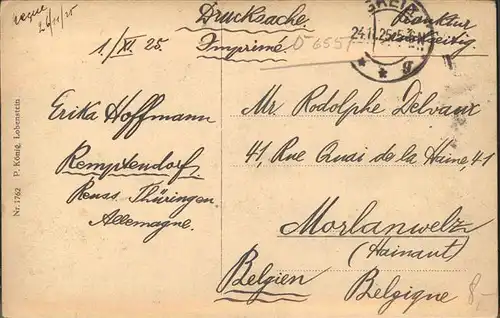 reçue
26/11/25
Drucksache
Imprimé
1./XI. 25.
D 6557
GREIZ
24.11.25.5-6N
* * g
Erika Hoffmann
Remptendorf,
Reuss Thüringen.
Allemagne.
Mr. Rodolphe Delvaux
41, Rue Quai de la Haine, 41
Morlanwelz
(Hainaut)
Belgien
Belgique
8,-
Nr. 1762 P. König, Lobenstein